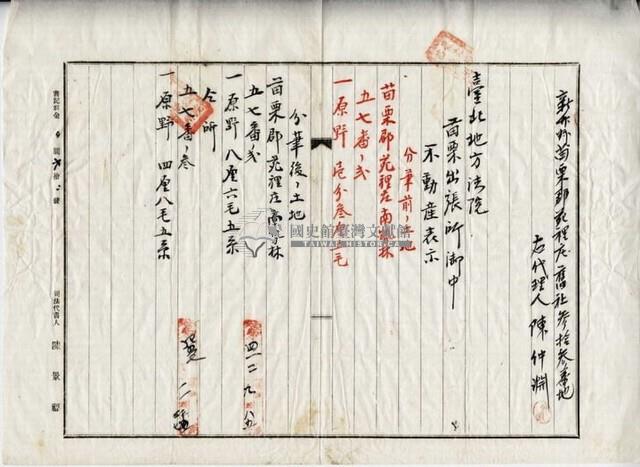 新竹州苗栗郡苑裡庄舊社參拾參番地
右代理人 陳仲淵
臺北地方法院
苗栗出張所御中
不動産表示
分筆前ノ土地
苗栗郡苑裡庄南勢林
五七番ノ弍
一原野 壱分參
分筆後ノ土地
苗栗郡苑裡庄南勢林
五七番ノ弍
一原野 八厘六毛五糸
仝所
五七番ノ參
一原野 四厘八毛五糸
司法代書人 陳景
國史館臺灣文獻館
TAIWAN HISTORICA